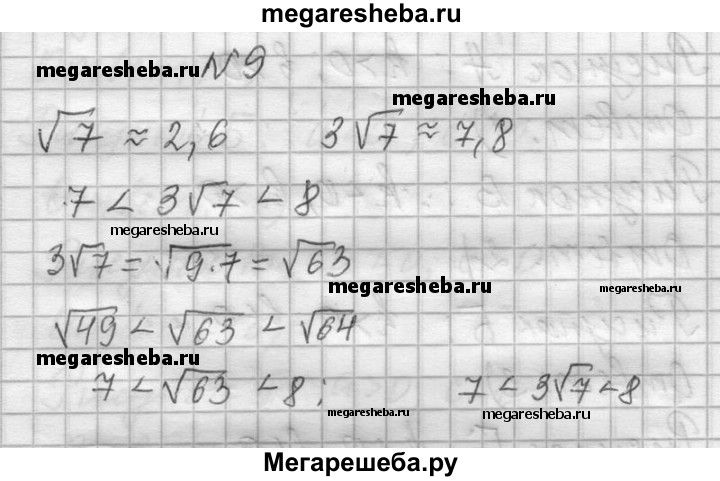 megaresheba.ru
megaresheba.ru №9
megaresheba.ru
√7 ≈ 2,6 3√7 ≈ 7,8
7 < 3√7 < 8
megaresheba.ru
3√7 = √9·7 = √63
megaresheba.ru megaresheba.ru
√49 < √63 < √64
megaresheba.ru
7 < √63 < 8; 7 < 3√7 < 8
megaresheba.ru megaresheba.ru
Мегарешеба.ру